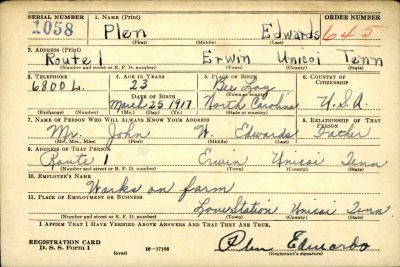 SERIAL NUMBER 1. NAME (Print) ORDER NUMBER
1058 Plen Edwards 645
(First) (Middle) (Last)
2. ADDRESS (Print)
Route 1 Erwin Unicoi Tenn
(Number and street or R. F. D. number) (Town) (County) (State)
3. TELEPHONE 4. AGE IN YEARS 5. PLACE OF BIRTH 6. COUNTRY OF CITIZENSHIP
6800 L. 23 Bee Log U.S.A.
DATE OF BIRTH (Town or county)
March 25 1917 North Carolina
(Exchange) (Number) (Mo.) (Day) (Yr.) (State or country)
7. NAME OF PERSON WHO WILL ALWAYS KNOW YOUR ADDRESS 8. RELATIONSHIP OF THAT PERSON
Mr. John W. Edwards Father
(Mr., Mrs., Miss) (First) (Middle) (Last)
9. ADDRESS OF THAT PERSON
Route 1 Erwin Unicoi Tenn
(Number and street or R. F. D. number) (Town) (County) (State)
10. EMPLOYER'S NAME
Works on farm
11. PLACE OF EMPLOYMENT OR BUSINESS
Station Unicoi Tenn
(Number and street or R. F. D. number) (Town) (County) (State)
I AFFIRM THAT I HAVE VERIFIED ABOVE ANSWERS AND THAT THEY ARE TRUE.
REGISTRATION CARD
D. S. S. Form 1 (over) 16—17105 Plen Edwards
(Registrant's signature)